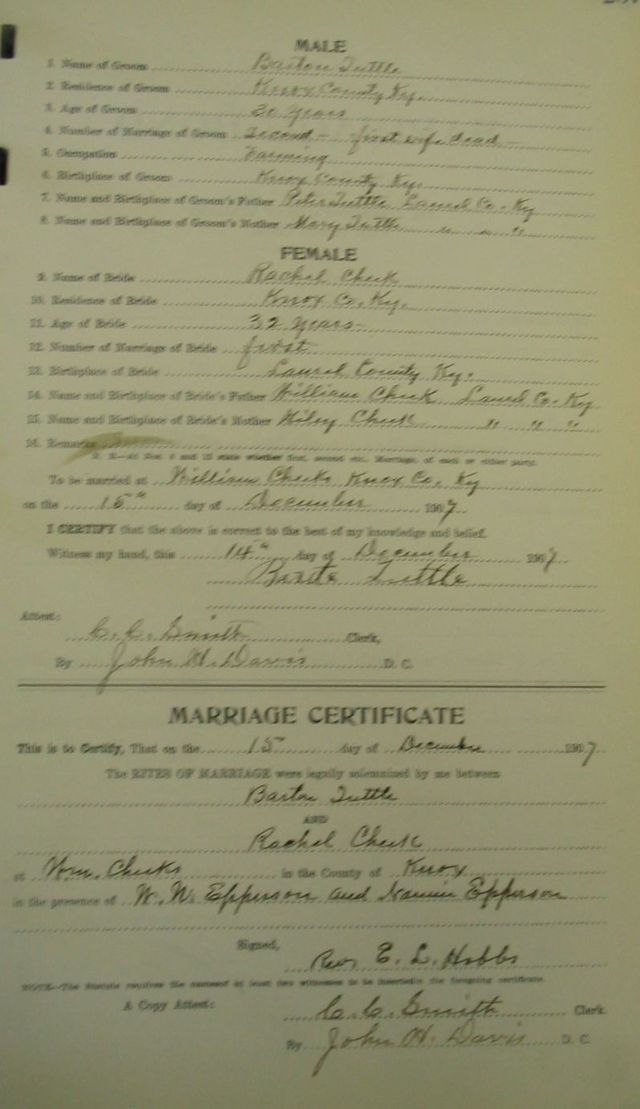 MALE
1. Name of Groom Barton Tuttle
2. Residence of Groom Knox County Ky.
3. Age of Groom 30 years
4. Number of Marriage of Groom Second - first wife dead -
5. Occupation Farming
6. Birthplace of Groom Knox County Ky.
7. Name and Birthplace of Groom's Father Peter Tuttle Laurel Co. Ky
8. Name and Birthplace of Groom's Mother Mary Tuttle " " "
FEMALE
9. Name of Bride Rachel Cheek
10. Residence of Bride Knox Co. Ky.
11. Age of Bride 32 years
12. Number of Marriage of Bride first
13. Birthplace of Bride Laurel County Ky.
14. Name and Birthplace of Bride's Father William Cheek Laurel Co. Ky
15. Name and Birthplace of Bride's Mother Wiley Cheek " " "
16. Remarks
N. B.—At Nos. 4 and 12 state whether first, second etc., Marriage, of each or either party.
To be married at William Cheeks Knox Co. Ky
on the 15th day of December 1907
I CERTIFY that the above is correct to the best of my knowledge and belief.
Witness my hand, this 14th day of December 1907
Barte Tuttle
Attest:
C. C. Smith Clerk,
By John H. Davis D. C.
MARRIAGE CERTIFICATE
This is to Certify, That on the 15 day of December 1907
The RITES OF MARRIAGE were legally solemnized by me between
Barton Tuttle
AND
Rachel Cheek
at Wm. Cheeks in the County of Knox
in the presence of W. W. Epperson and Nannie Epperson
Signed,
Rev E. L. Hobbs
NOTE—The Statute requires the names of at least two witnesses to be inserted in the foregoing certificate.
A Copy Attest:
C. C. Smith Clerk.
By John H. Davis D. C.